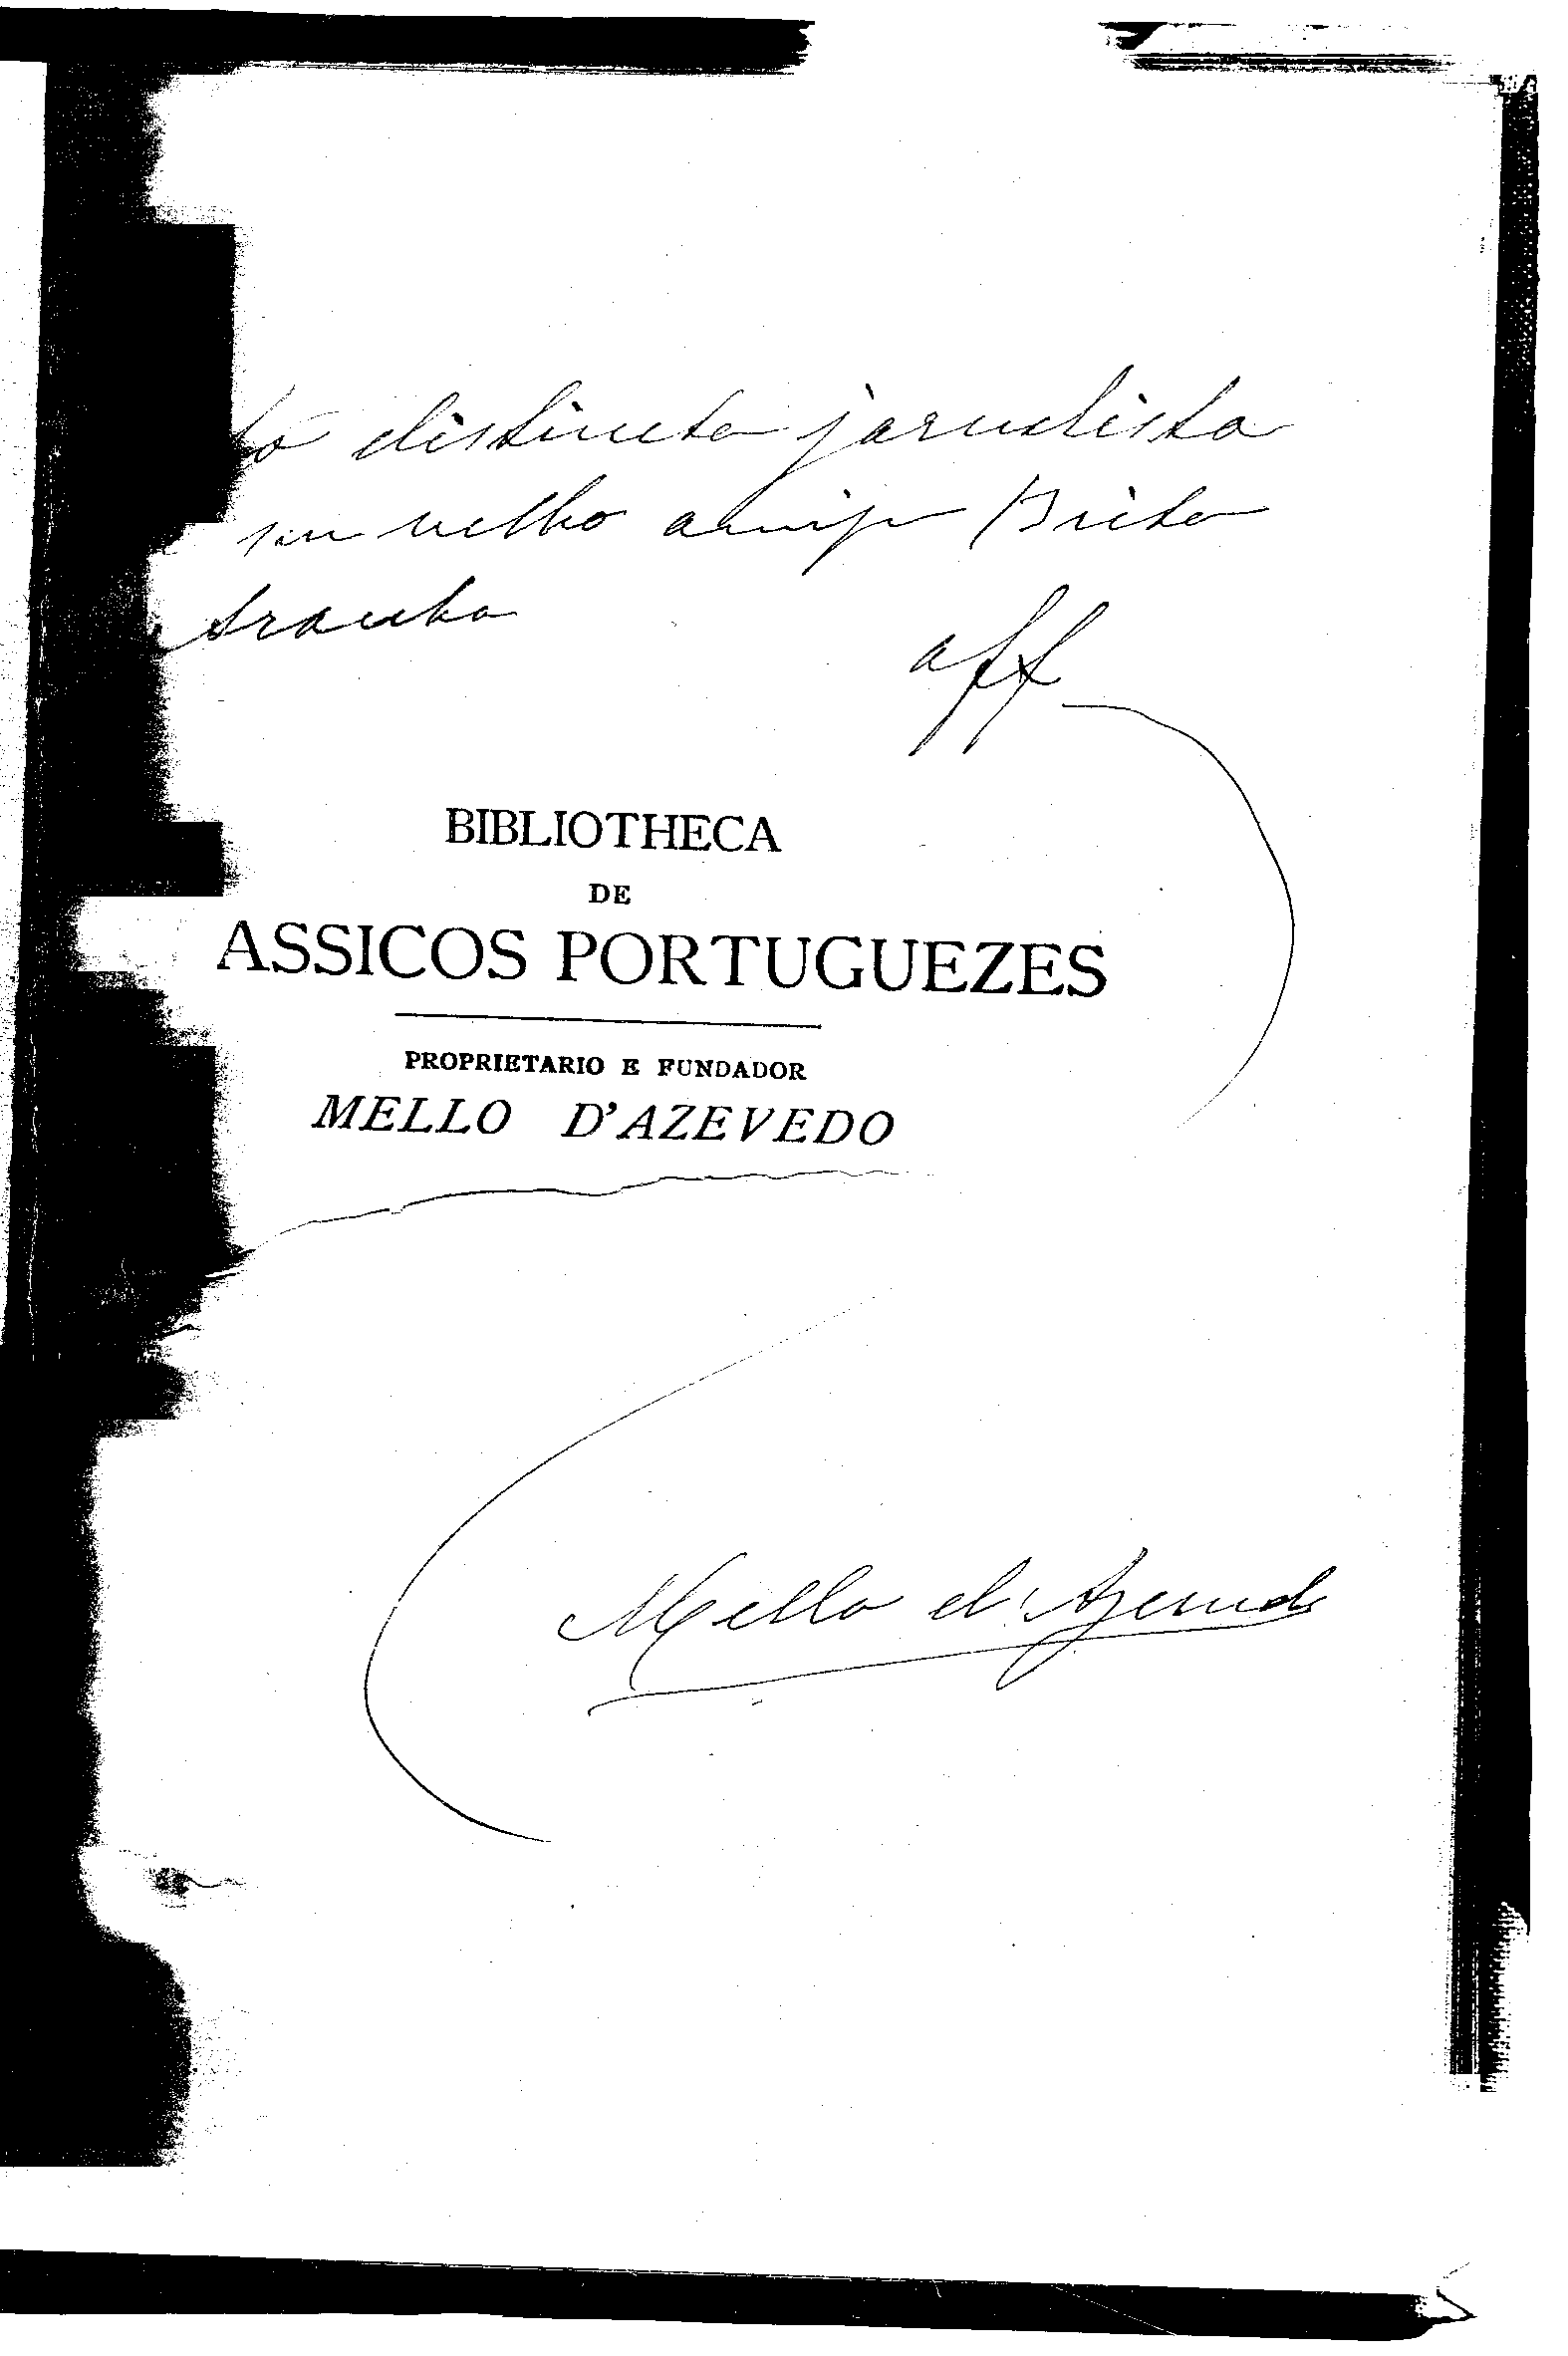 distincto jornalista
seu velho amigo Brito
Aranha
aff
BIBLIOTHECA
DE
ASSICOS PORTUGUEZES
PROPRIETARIO E FUNDADOR
MELLO D'AZEVEDO
Mello d'Azevedo